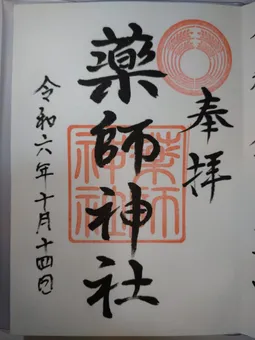 奉拝
薬師神社
薬師神社
令和六年十月十四日